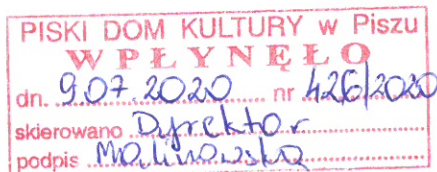 PISKI DOM KULTURY w Piszu
WPŁYNĘŁO
dn. 9.07.2020 nr 426/2020
skierowano Dyrektor
podpis Malinowska